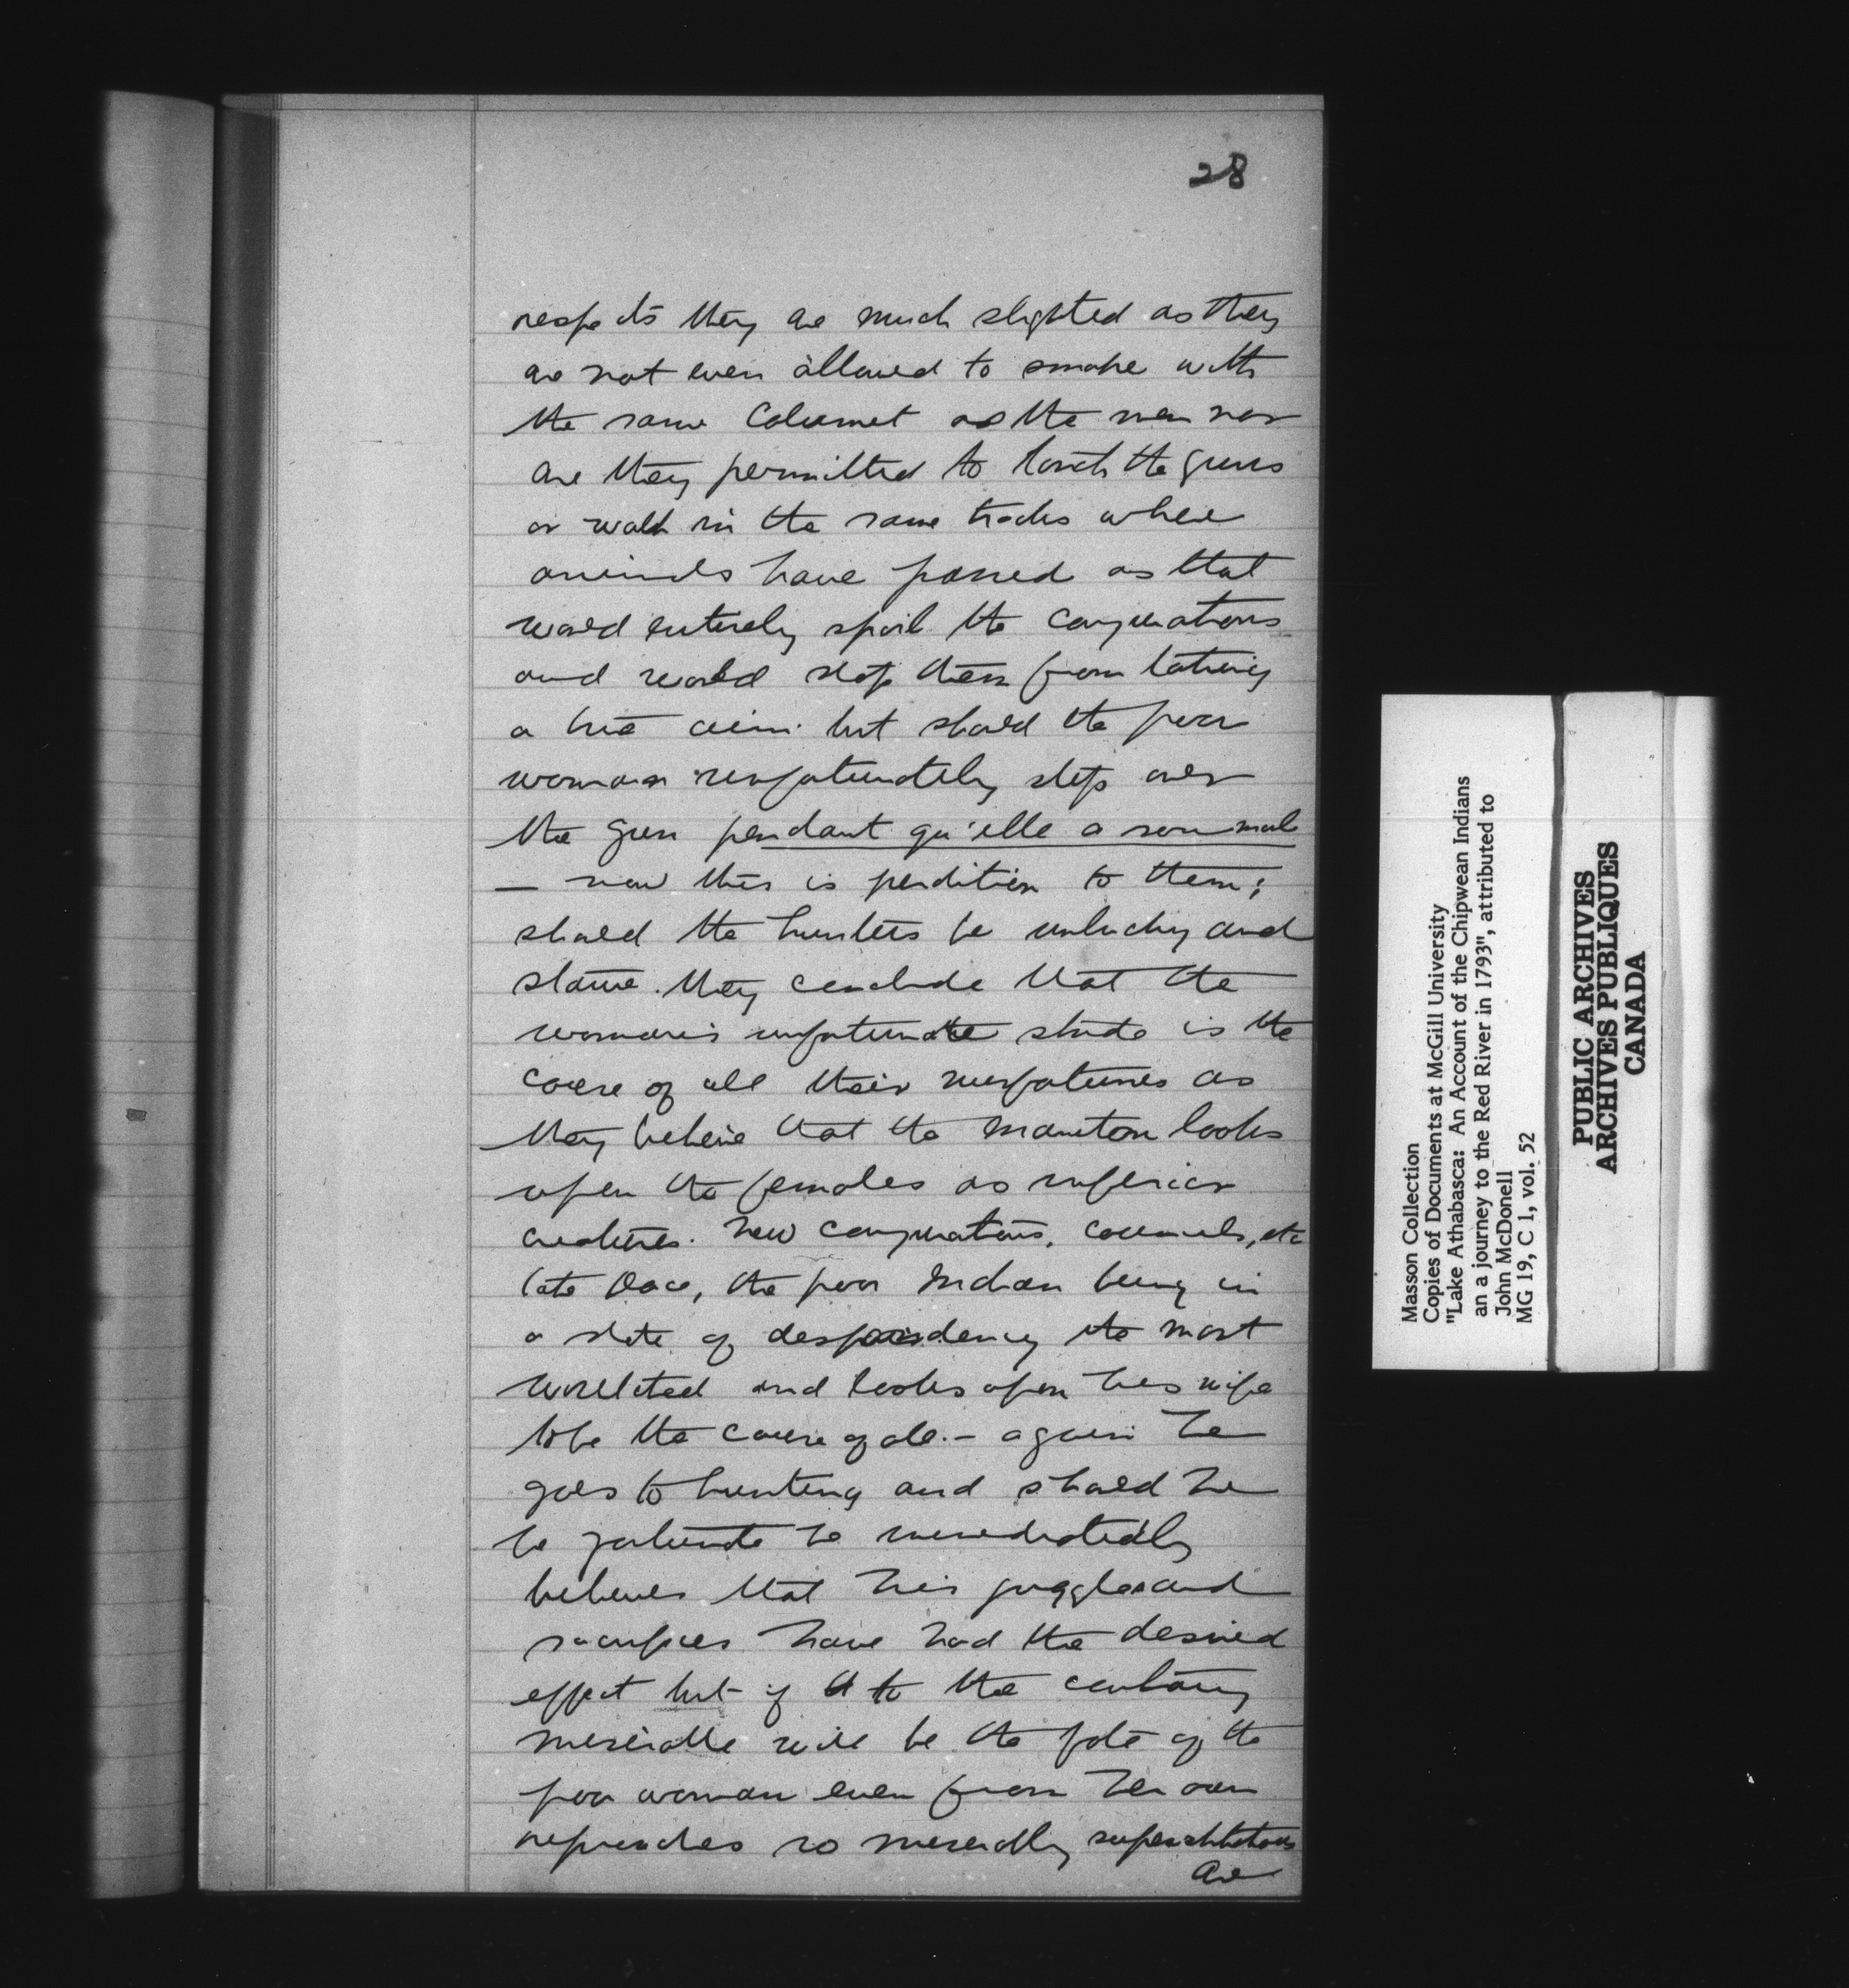 28
respects they are much slighted as they
are not even allowed to smoke with
the same Calumet as the men nor
are they permitted to touch the guns
or walk in the same tracks where
animals have passed as that
would entirely spoil the conjurations
and would stop them from taking
a true aim. but should the poor
woman unfortunately step over
the gun pendant qu'elle a son mal
— now this is perdition to them;
should the hunters be unlucky and
starve. they conclude that the
woman's unfortunate stride is the
cause of all their misfortunes as
they believe that the manitou looks
upon the females as inferior
creatures. New conjurations, counsels, etc
take place, the poor Indian being in
a state of despondency the most
wretched and looks upon his wife
to be the cause of all. — again he
goes to hunting and should he
be fortunate he immediately
believes that his juggles and
sacrifices have had the desired
effect but if to the contrary
miserable will be the fate of the
poor woman even from her own
reproaches so miserably superstitious
are
Masson Collection
Copies of Documents at McGill University
"Lake Athabasca: An Account of the Chipwean Indians
an a journey to the Red River in 1793", attributed to
John McDonell
MG 19, C 1, vol. 52
PUBLIC ARCHIVES
ARCHIVES PUBLIQUES
CANADA